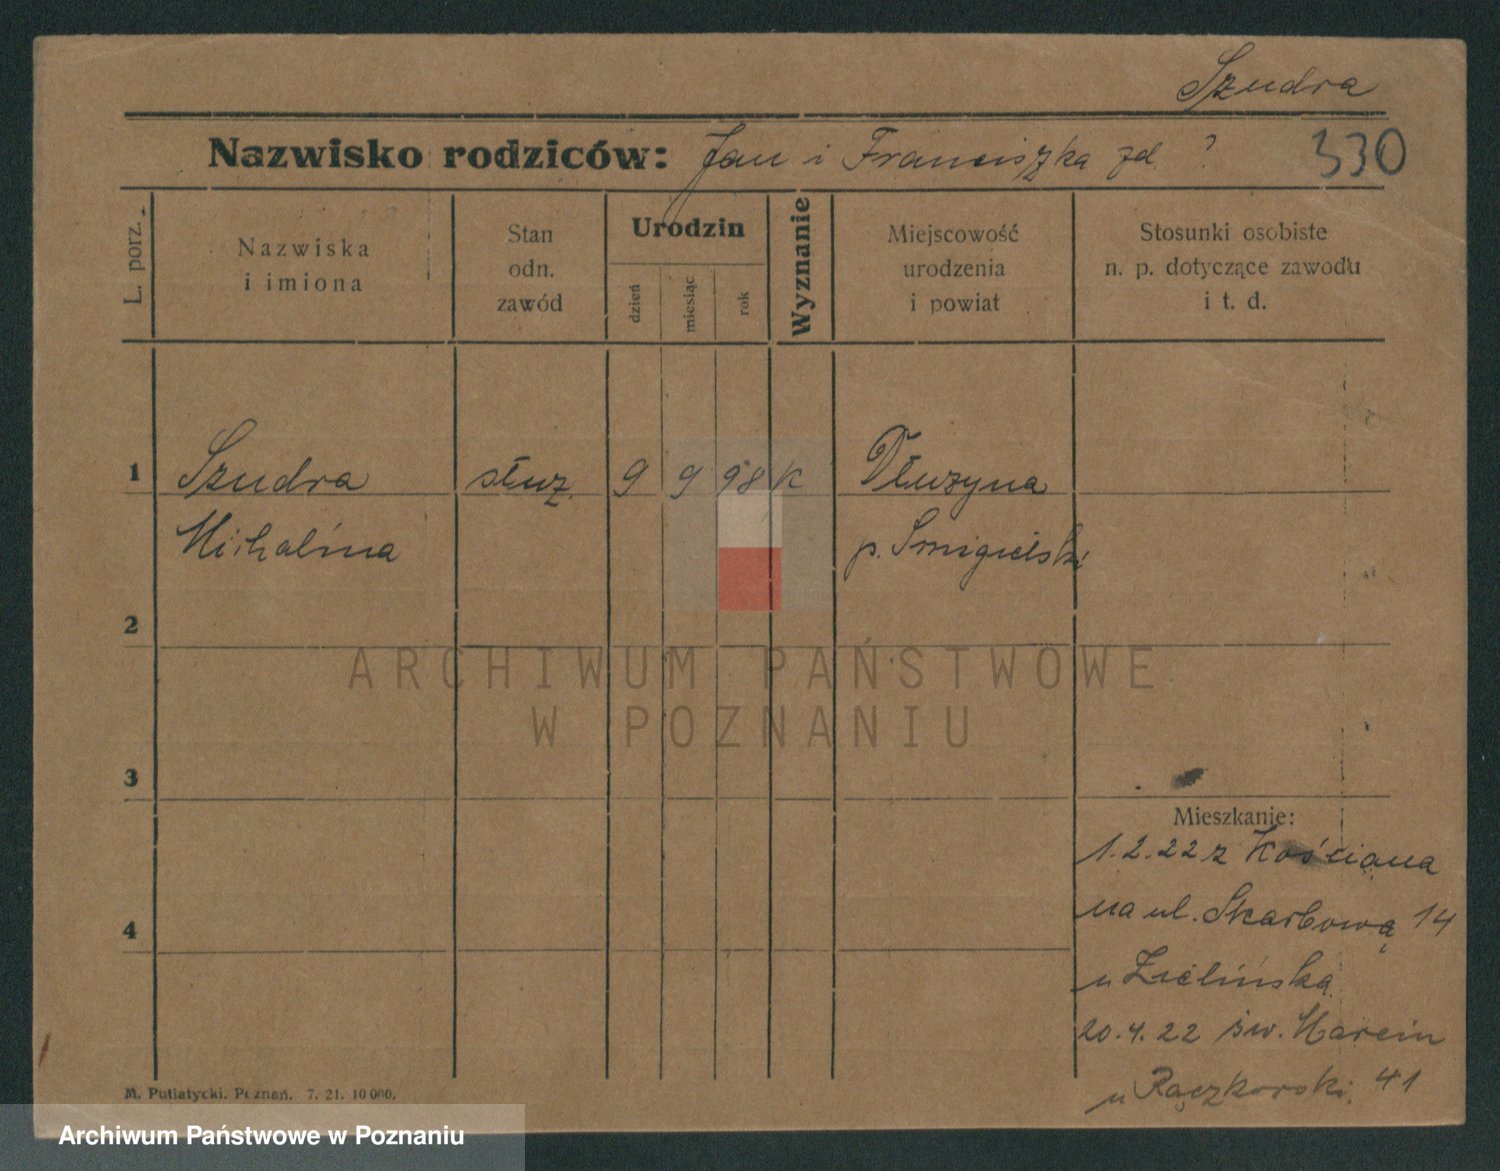 Szudra
Nazwisko rodziców: Jan i Franciszka zd. ? 330
L. porz.
Nazwiska
i imiona
Stan
odn.
zawód
Urodzin
dzień
miesiąc
rok
Wyznanie
Miejscowość
urodzenia
i powiat
Stosunki osobiste
n. p. dotyczące zawodu
i t. d.
1 Szudra służ. 9 9 98 K Dłużyna
Michalina p. Smigielski
2
ARCHIWUM PAŃSTWOWE
W POZNANIU
3
Mieszkanie:
1.2.22 z Kościana
na ul. Skarbową 14
4
u Zielińska
20.4.22 św. Marcin
u Rączkorski. 41
M. Putiatycki. Poznań. 7. 21. 10 000.
Archiwum Państwowe w Poznaniu